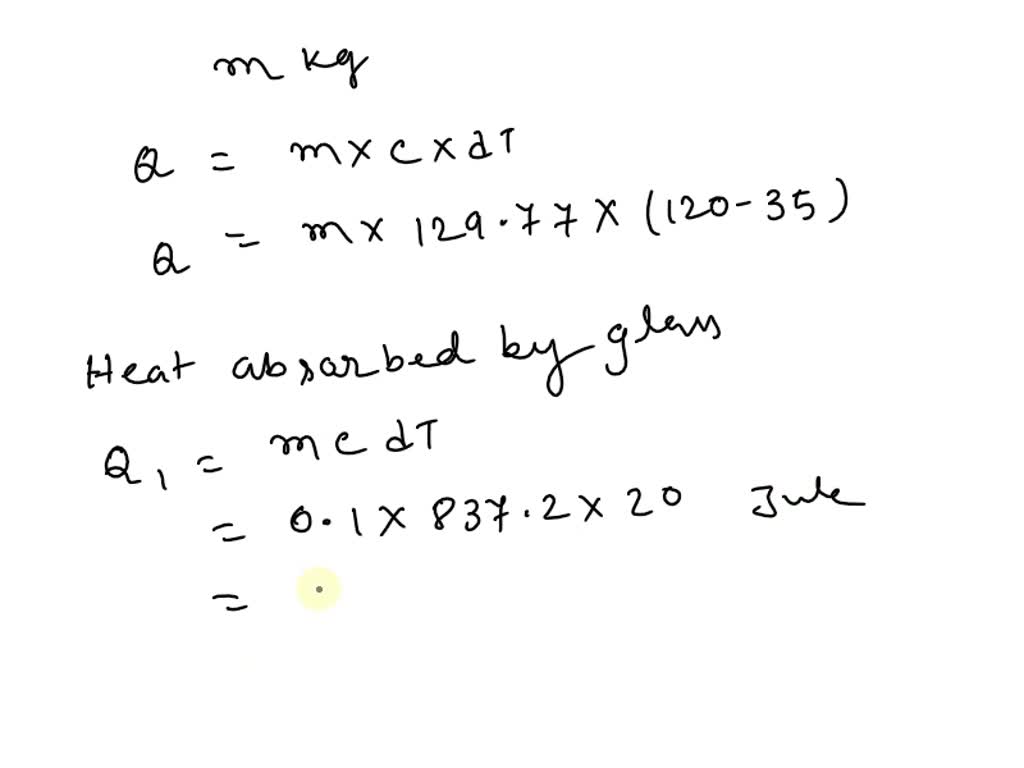 m kg
Q = m × c × dT
Q = m × 129.77 × (120-35)
Heat absorbed by glass
Q1 = m c dT
= 0.1 × 837.2 × 20 Jule
=